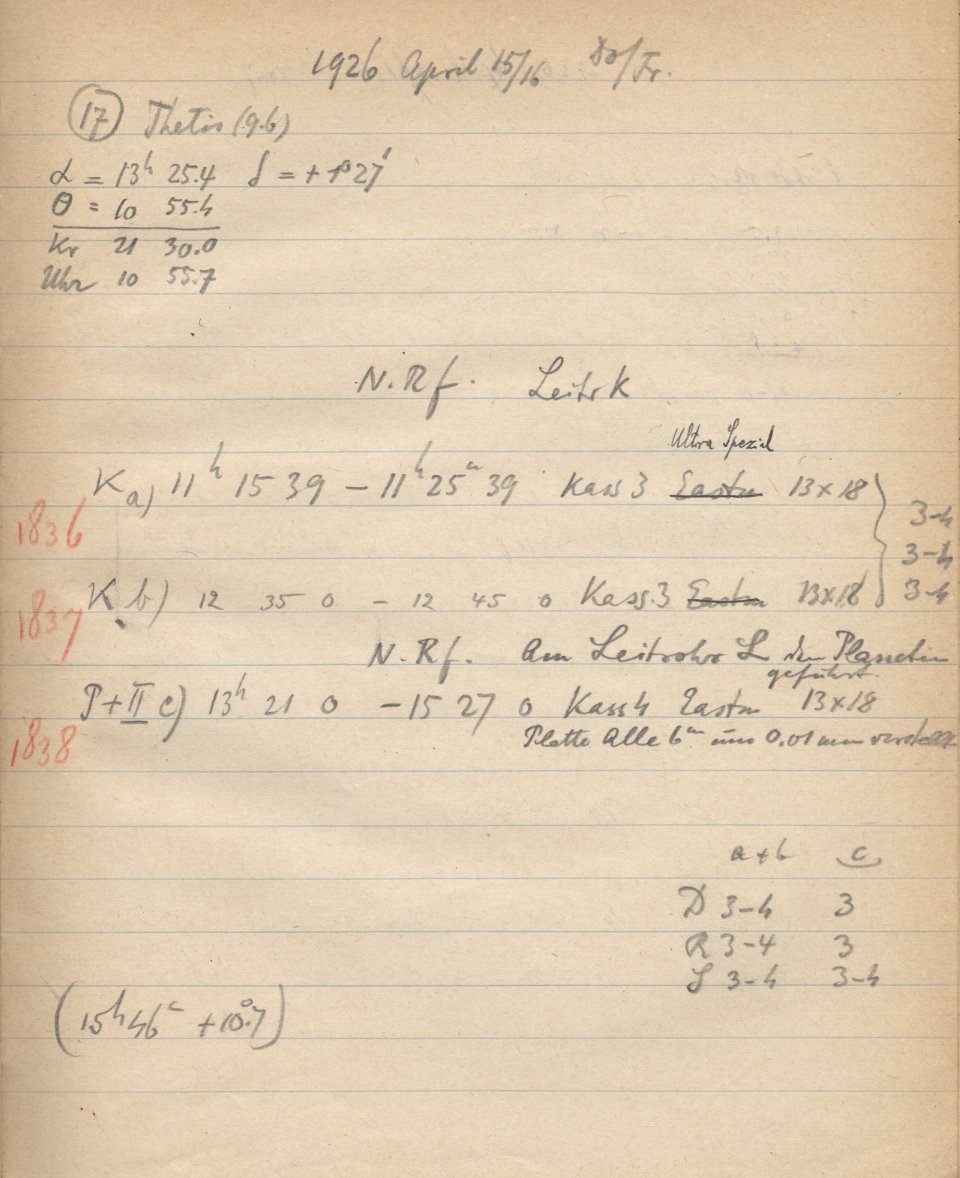 1926 April 15/16 Do/Fr.
17 Thetis (9.6)
α = 13h 25.4 δ = +1°27'
θ = 10 55.4
Kr 21 30.0
Uhr 10 55.7
N.Rf. Leitr K
Ultra Spezial
K a) 11h 15 39 – 11h 25m 39 Kass 3 Eastm 13x18
3-4
1836
3-4
K b) 12 35 0 – 12 45 0 Kass.3 Eastm 13x18
3-4
1837
N.Rf. Am Leitrohr L den Planeten
geführt.
P+II c) 13h 21 0 – 15 27 0 Kass 4 Eastm 13x18
1838
Platte alle 6m um 0,01 mm verstellt
a+b c
D 3-4 3
R 3-4 3
L 3-4 3-4
(15h46m +10°.7)